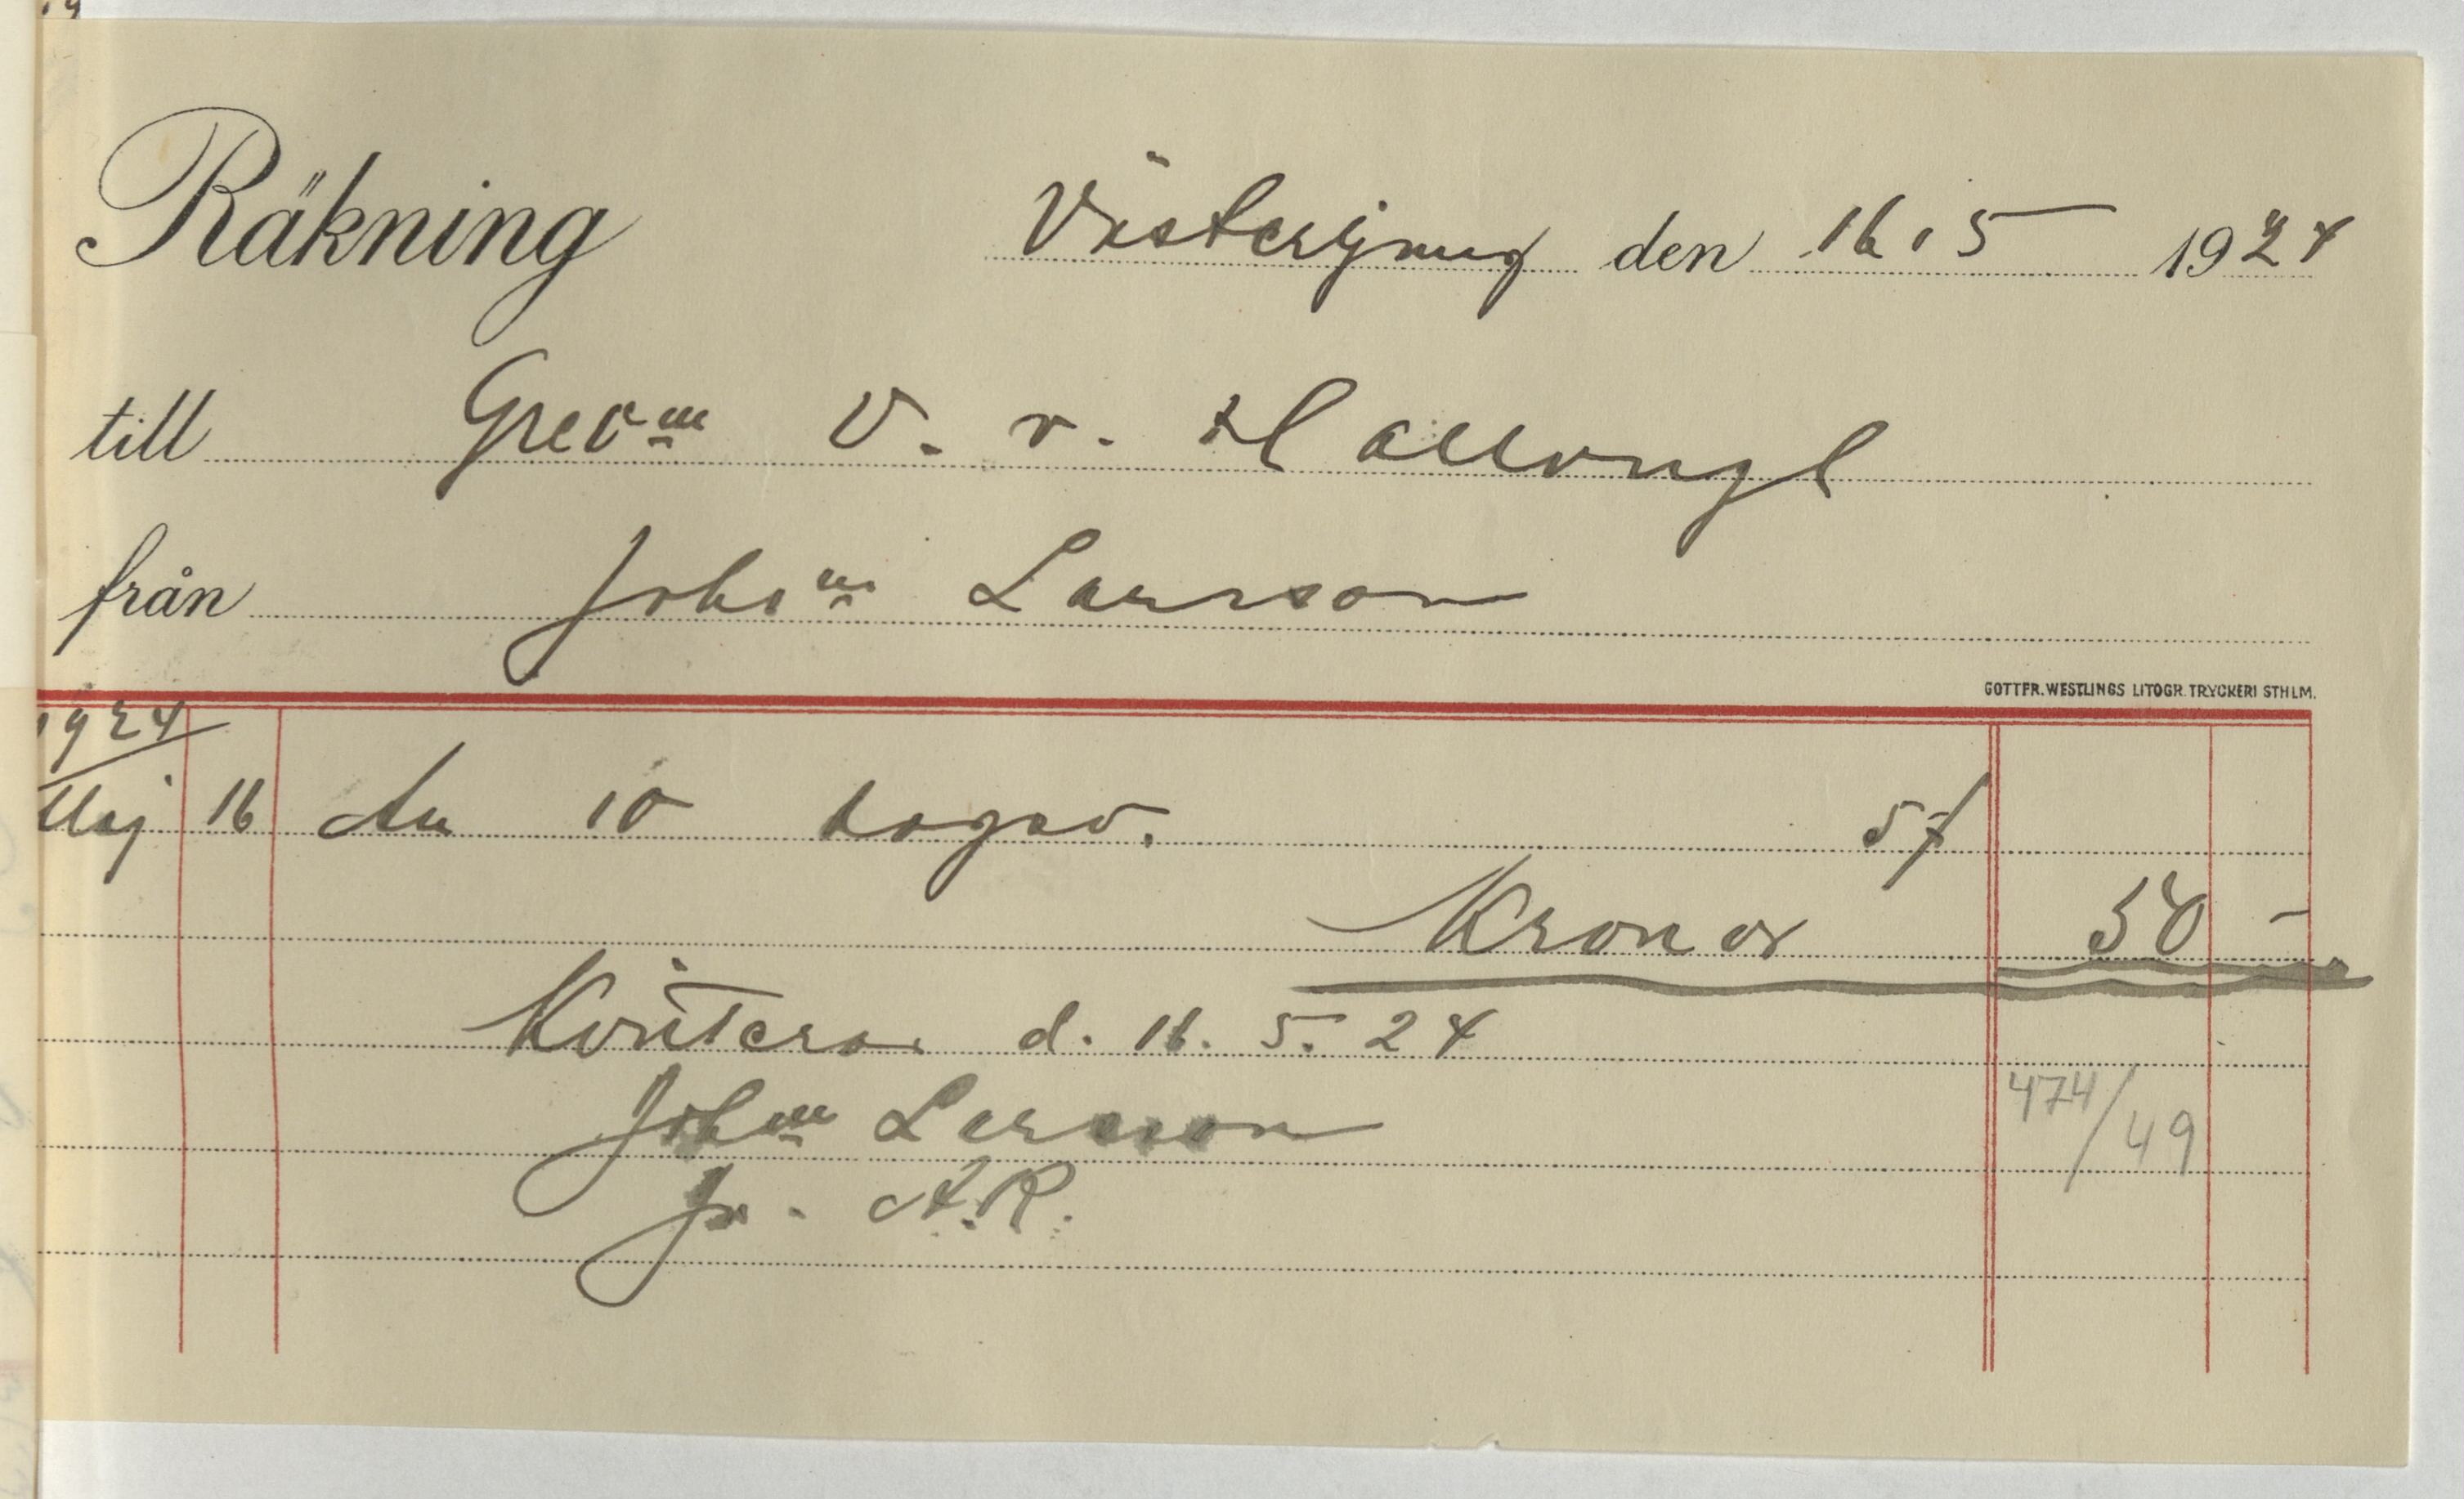 Räkning Västerljung den 16.5 1924
till Grevn W. v. Hallwyl
från Johan Larsson
GOTTFR. WESTLINGS LITOGR. TRYCKERI STHLM.
1924
Maj 16 An 10 5/
Kronor 50 -
Kvitteras d. 16. 5. 24
Johan Larsson
474/49
A.R.